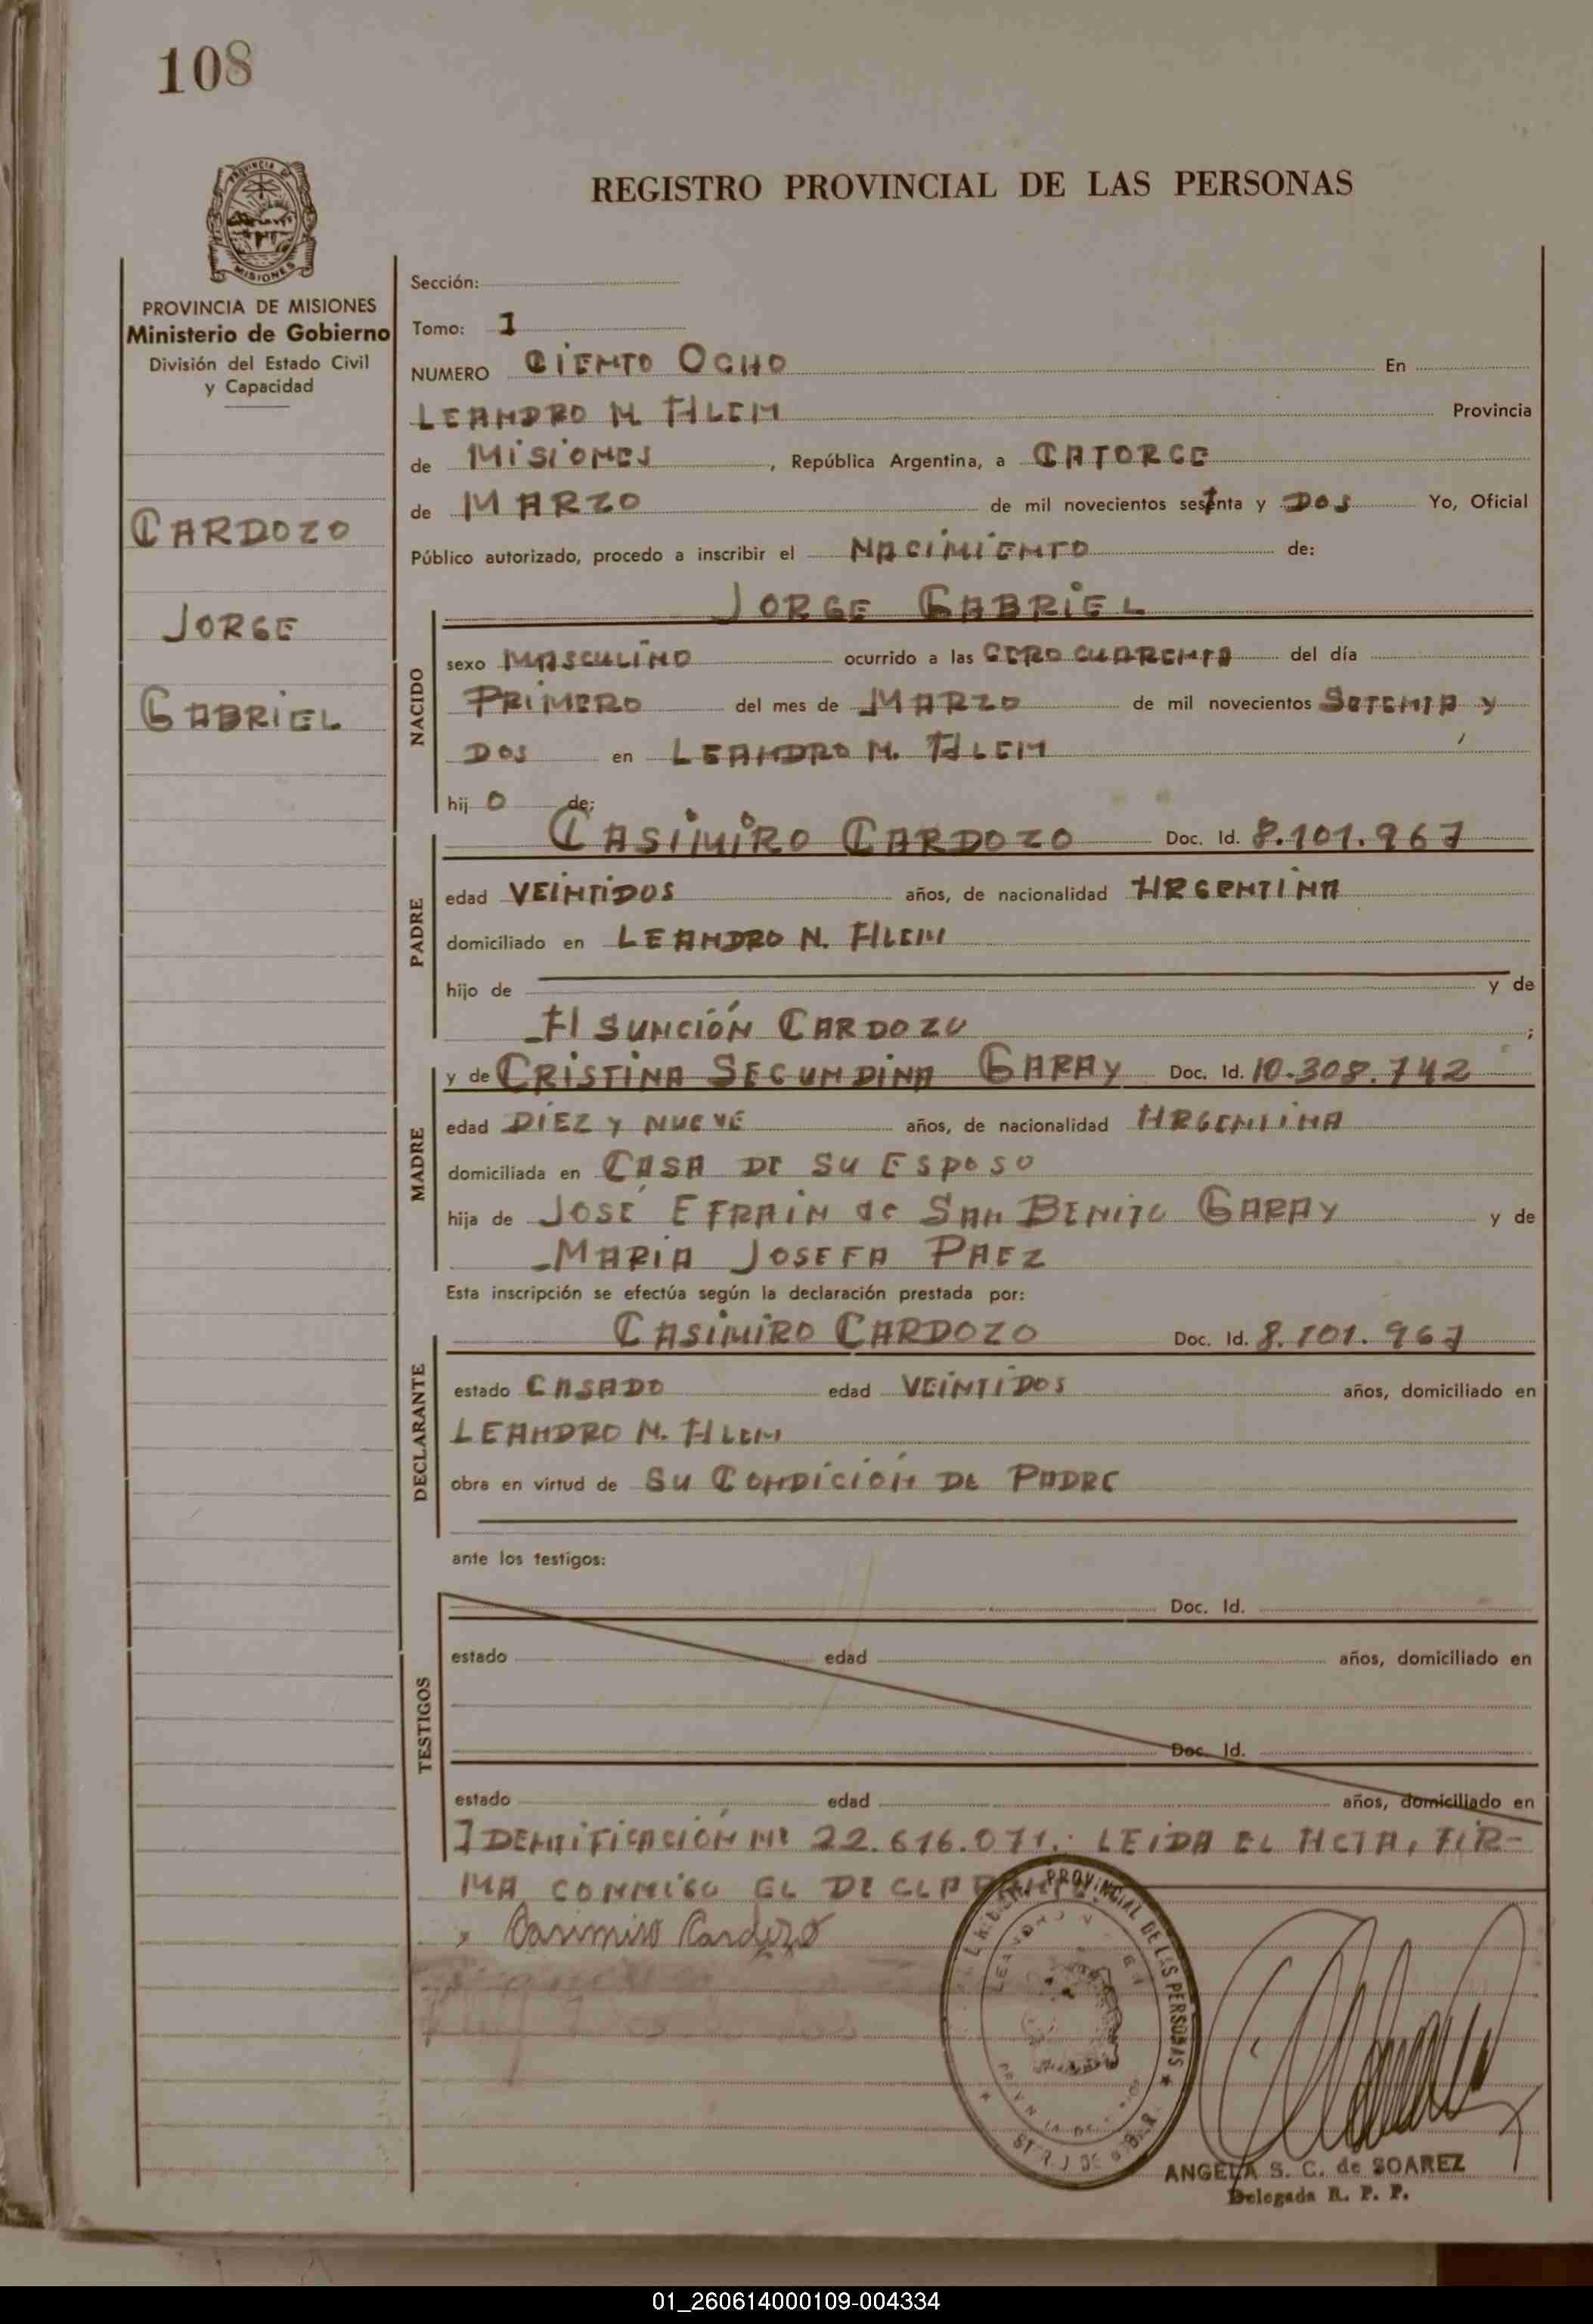 108
PROVINCIA DE
MISIONES
PROVINCIA DE MISIONES
Ministerio de Gobierno
División del Estado Civil
y Capacidad
CARDOZO
JORGE
GABRIEL
REGISTRO PROVINCIAL DE LAS PERSONAS
Sección:
Tomo: 1
NUMERO CIENTO OCHO En
LEANDRO N ALEM Provincia
de MISIONES, República Argentina, a CATORCE
de MARZO de mil novecientos setenta y DOS Yo, Oficial
Público autorizado, procedo a inscribir el NACIMIENTO de:
JORGE GABRIEL
NACIDO
sexo MASCULINO ocurrido a las CERO CUARENTA del día
PRIMERO del mes de MARZO de mil novecientos SETENTA y
DOS en LEANDRO N. ALEM
hij O de:
CASIMIRO CARDOZO Doc. Id. 8.101.967
PADRE
edad VEINTIDOS años, de nacionalidad ARGENTINA
domiciliado en LEANDRO N. ALEM
hijo de y de
ASUNCIÓN CARDOZO ;
MADRE
y de CRISTINA SECUNDINA GARAY Doc. Id. 10.308.742
edad DIEZ Y NUEVE años, de nacionalidad ARGENTINA
domiciliada en CASA DE SU ESPOSO
hija de JOSÉ EFRAIN de SAN BENITO GARAY y de
MARIA JOSEFA PAEZ
Esta inscripción se efectúa según la declaración prestada por:
CASIMIRO CARDOZO Doc. Id. 8.101.967
DECLARANTE
estado CASADO edad VEINTIDOS años, domiciliado en
LEANDRO N. ALEM
obra en virtud de SU CONDICIÓN DE PADRE
ante los testigos:
TESTIGOS
Doc. Id.
estado edad años, domiciliado en
Doc. Id.
estado edad años, domiciliado en
IDENTIFICACIÓN Nº 22.616.071.- LEIDA EL ACTA, FIR-
MA CONMIGO EL DECLARANTE
Casimiro Cardozo
PROVINCIAL DE LAS PERSONAS
ANGELA S. C. de SOAREZ
Delegada R. P. P.
01_260614000109-004334